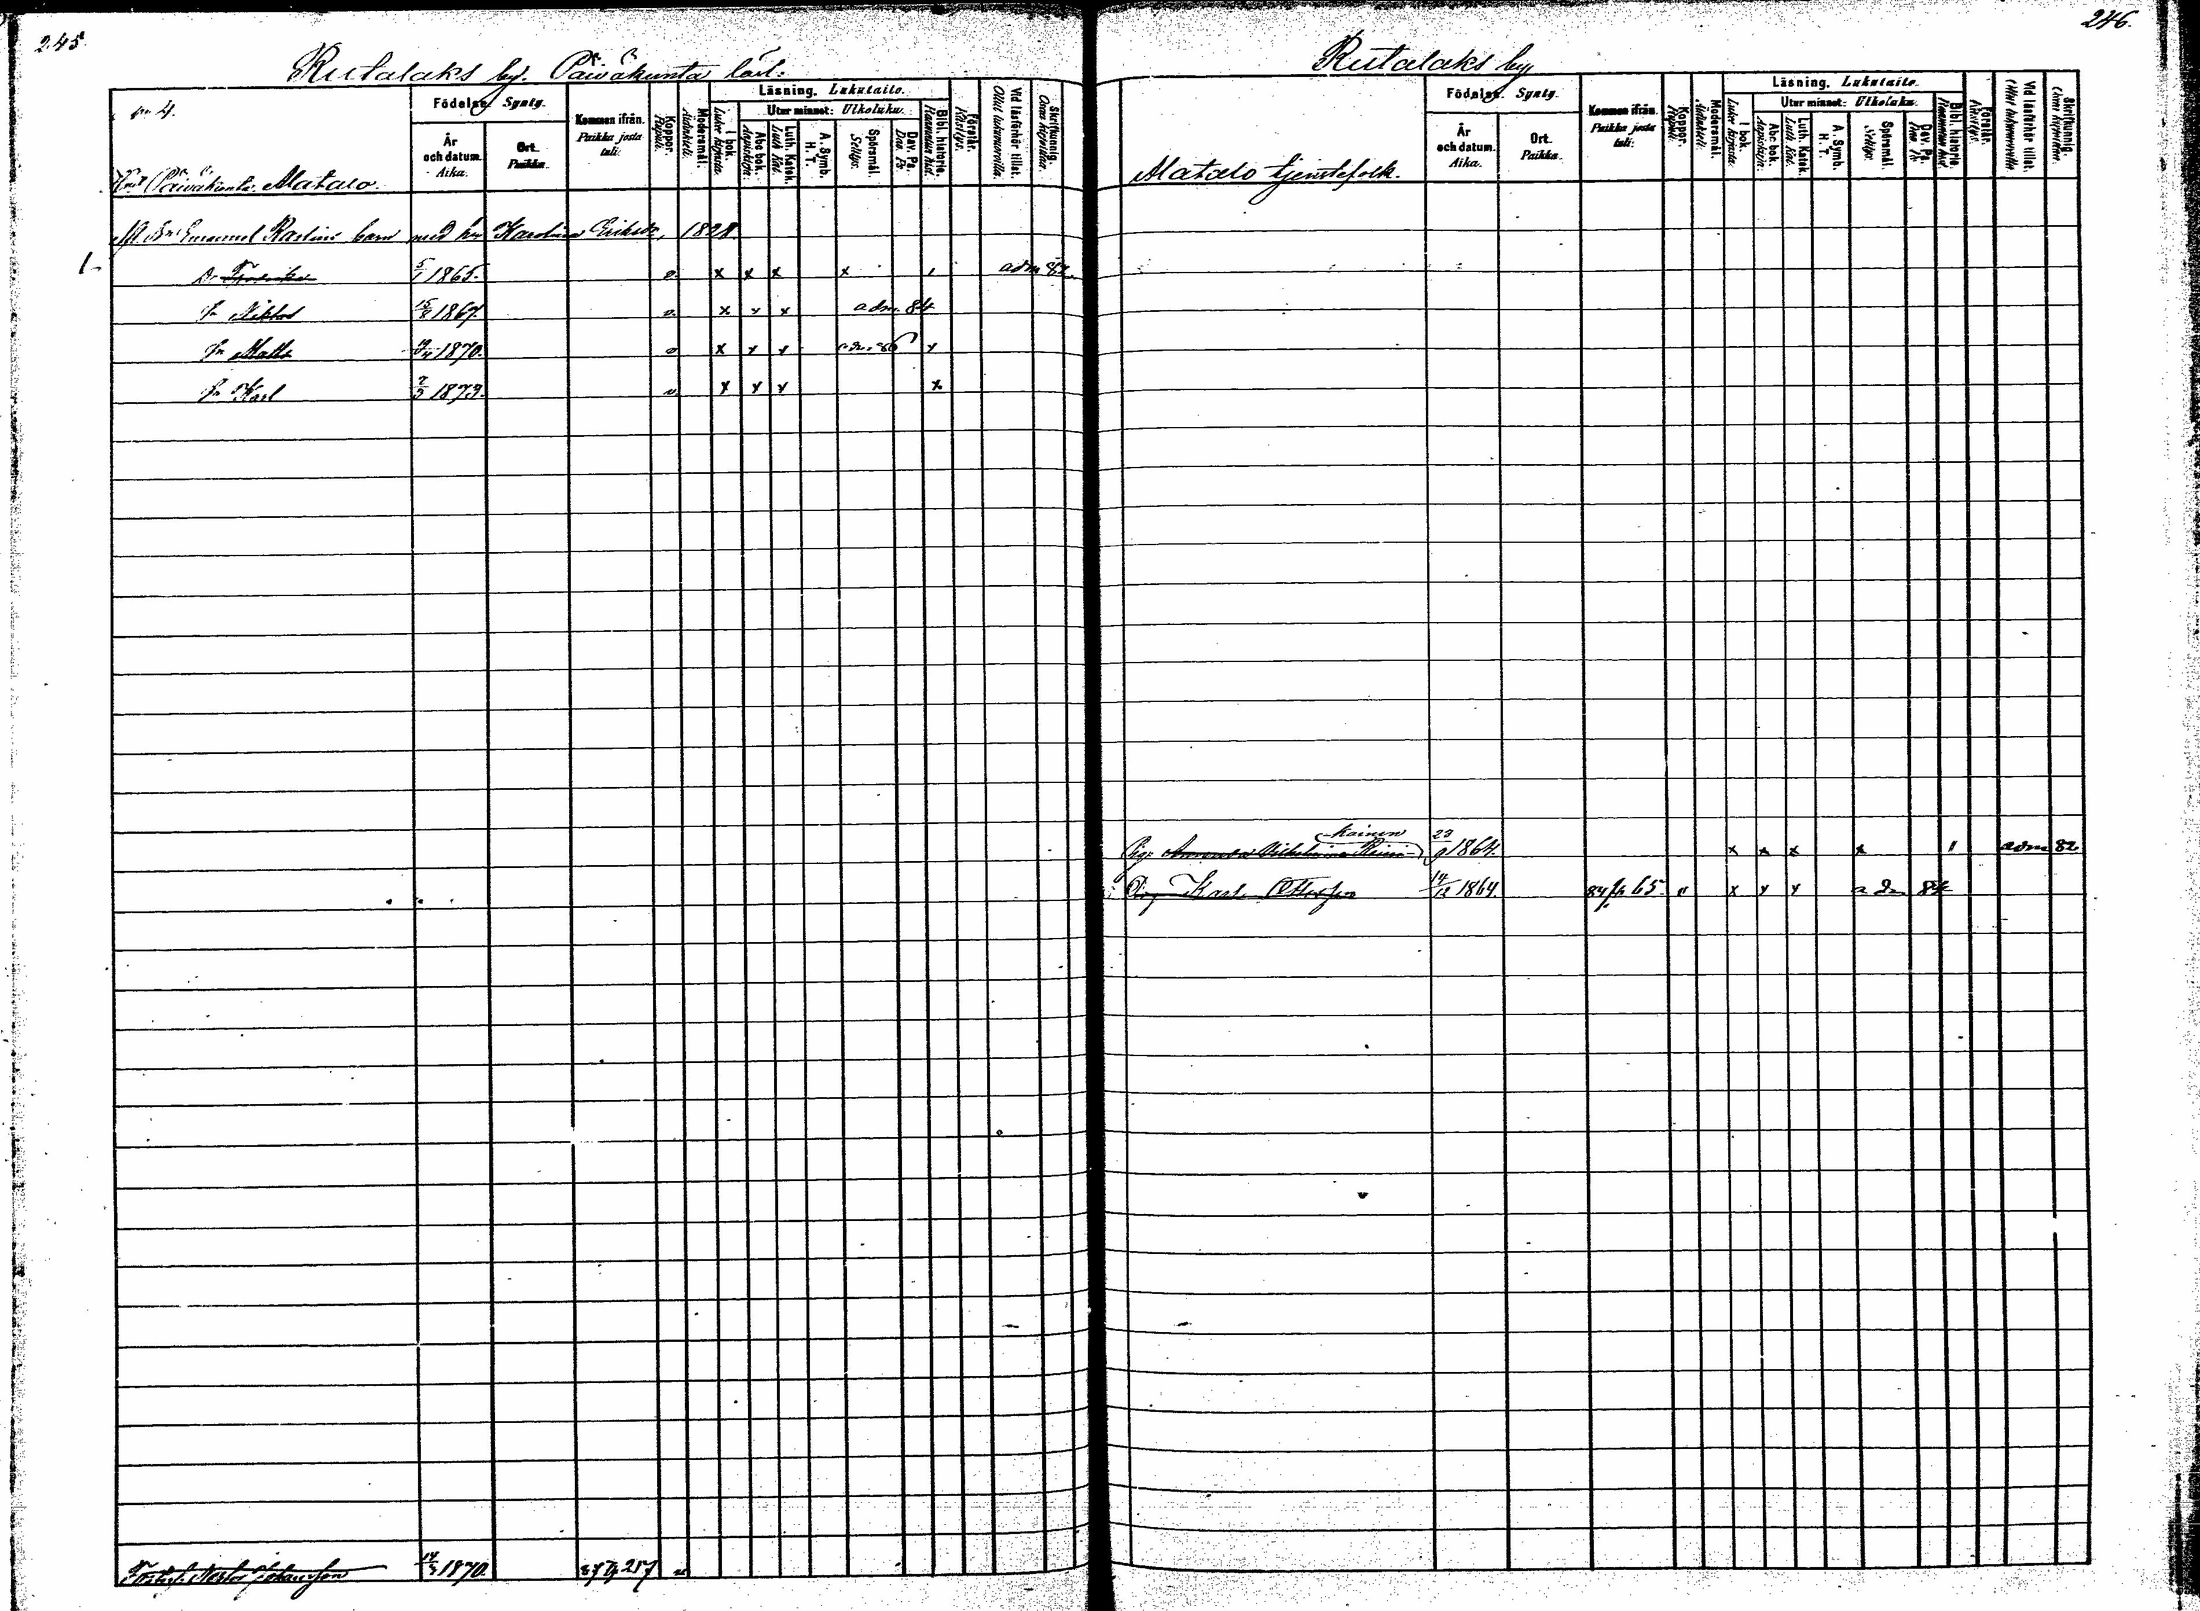 245.
Rutalaks by. Päiväkunta
No 4.
Födelse. Synty.
År och datum. Aika.
Ort. Paikka.
Kommen ifrån. Paikka josta tuli.
Koppor. Rupuli.
Modersmål. Äidinkieli.
Läsning. Lukutaito.
I bok. Lukee kirjasta.
Utur minnet: Ulkoluku.
Abc bok. Aapiskirja.
Luth. Katek. Luth. Kat.
A. Symb. H. T.
Spörsmål. Selitys.
Dav. Ps. Dav. Ps.
Bibl. historia. Raamatun hist.
Förstår. Käsitys.
Vid läsförhör tillst. Ollut lukuvuorolla.
Skrifkunnig. Osaa kirjoittaa.
Päiväkunta Matalo.
Emanuel barn med hu Karolina Eriksdr, 1828.
1. D. 5/1 1865. x x x x adm 82
15/8 1867. x x x adm. 84
Sn Matts 1870. x x x adm 86 x
Sn Karl 7/3 1873. x x x x
Johansson 14/3 1870. 257
246.
Rutalaks by
Matalo tjenstefolk.
Födelse. Synty.
År och datum. Aika.
Ort. Paikka.
Kommen ifrån. Paikka josta tuli.
Koppor. Rupuli.
Modersmål. Äidinkieli.
Läsning. Lukutaito.
I bok. Lukee kirjasta.
Utur minnet: Ulkoluku.
Abc bok. Aapiskirja.
Luth. Katek. Luth. Kat.
A. Symb. H. T.
Spörsmål. Selitys.
Dav. Ps. Dav. Ps.
Bibl. historia. Raamatun hist.
Förstår. Käsitys.
Vid läsförhör tillst. Ollut lukuvuorolla.
Skrifkunnig. Osaa kirjoittaa.
kainen
Pig. Amanda Vilhelmina 23/9 1864. x x x x " adm 82
Karl 14/12 1864. 65. " x x x adm 84